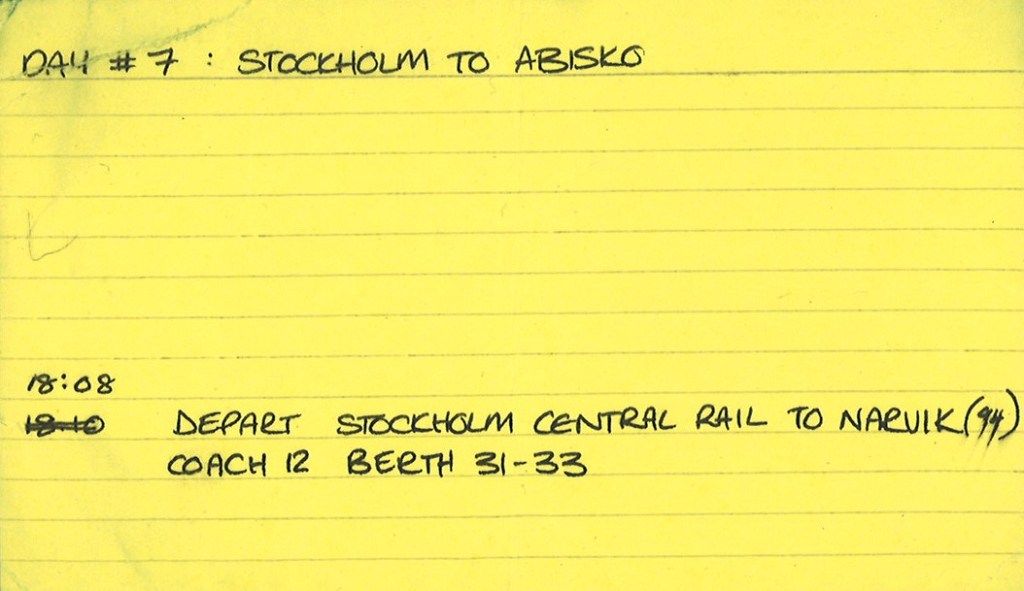 DAY # 7 : STOCKHOLM TO ABISKO
18:08
18:10 DEPART STOCKHOLM CENTRAL RAIL TO NARVIK (94)
COACH 12 BERTH 31-33